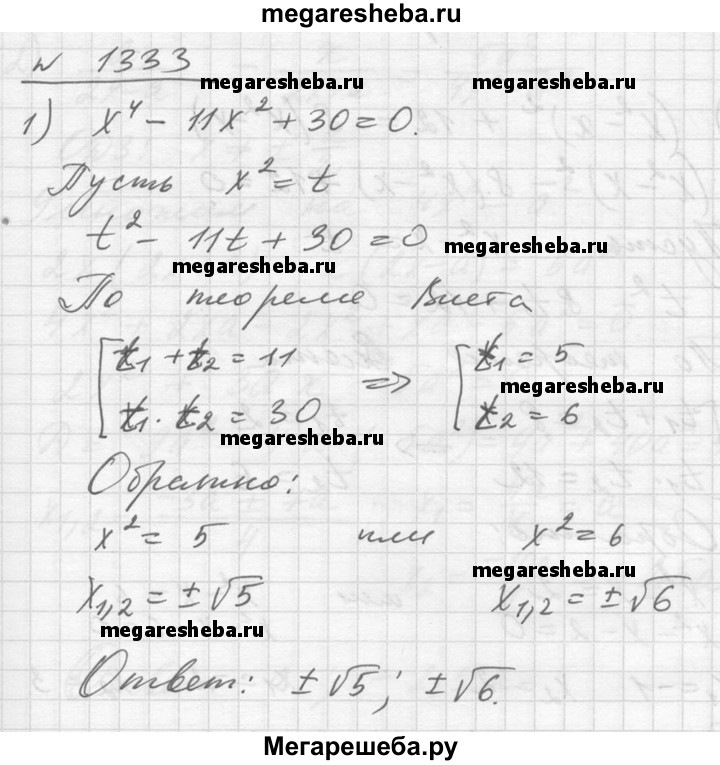 megaresheba.ru
№ 1333
megaresheba.ru megaresheba.ru
1) x⁴ - 11x² + 30 = 0.
Пусть x² = t
t² - 11t + 30 = 0
megaresheba.ru
megaresheba.ru
По теореме Виета
[ t₁ + t₂ = 11 => [ t₁ = 5
megaresheba.ru
t₁ · t₂ = 30 t₂ = 6
megaresheba.ru
Обратно:
x² = 5 или x² = 6
megaresheba.ru
x₁,₂ = ±√5 x₁,₂ = ±√6
megaresheba.ru
Ответ: ±√5; ±√6.
Мегарешеба.ру